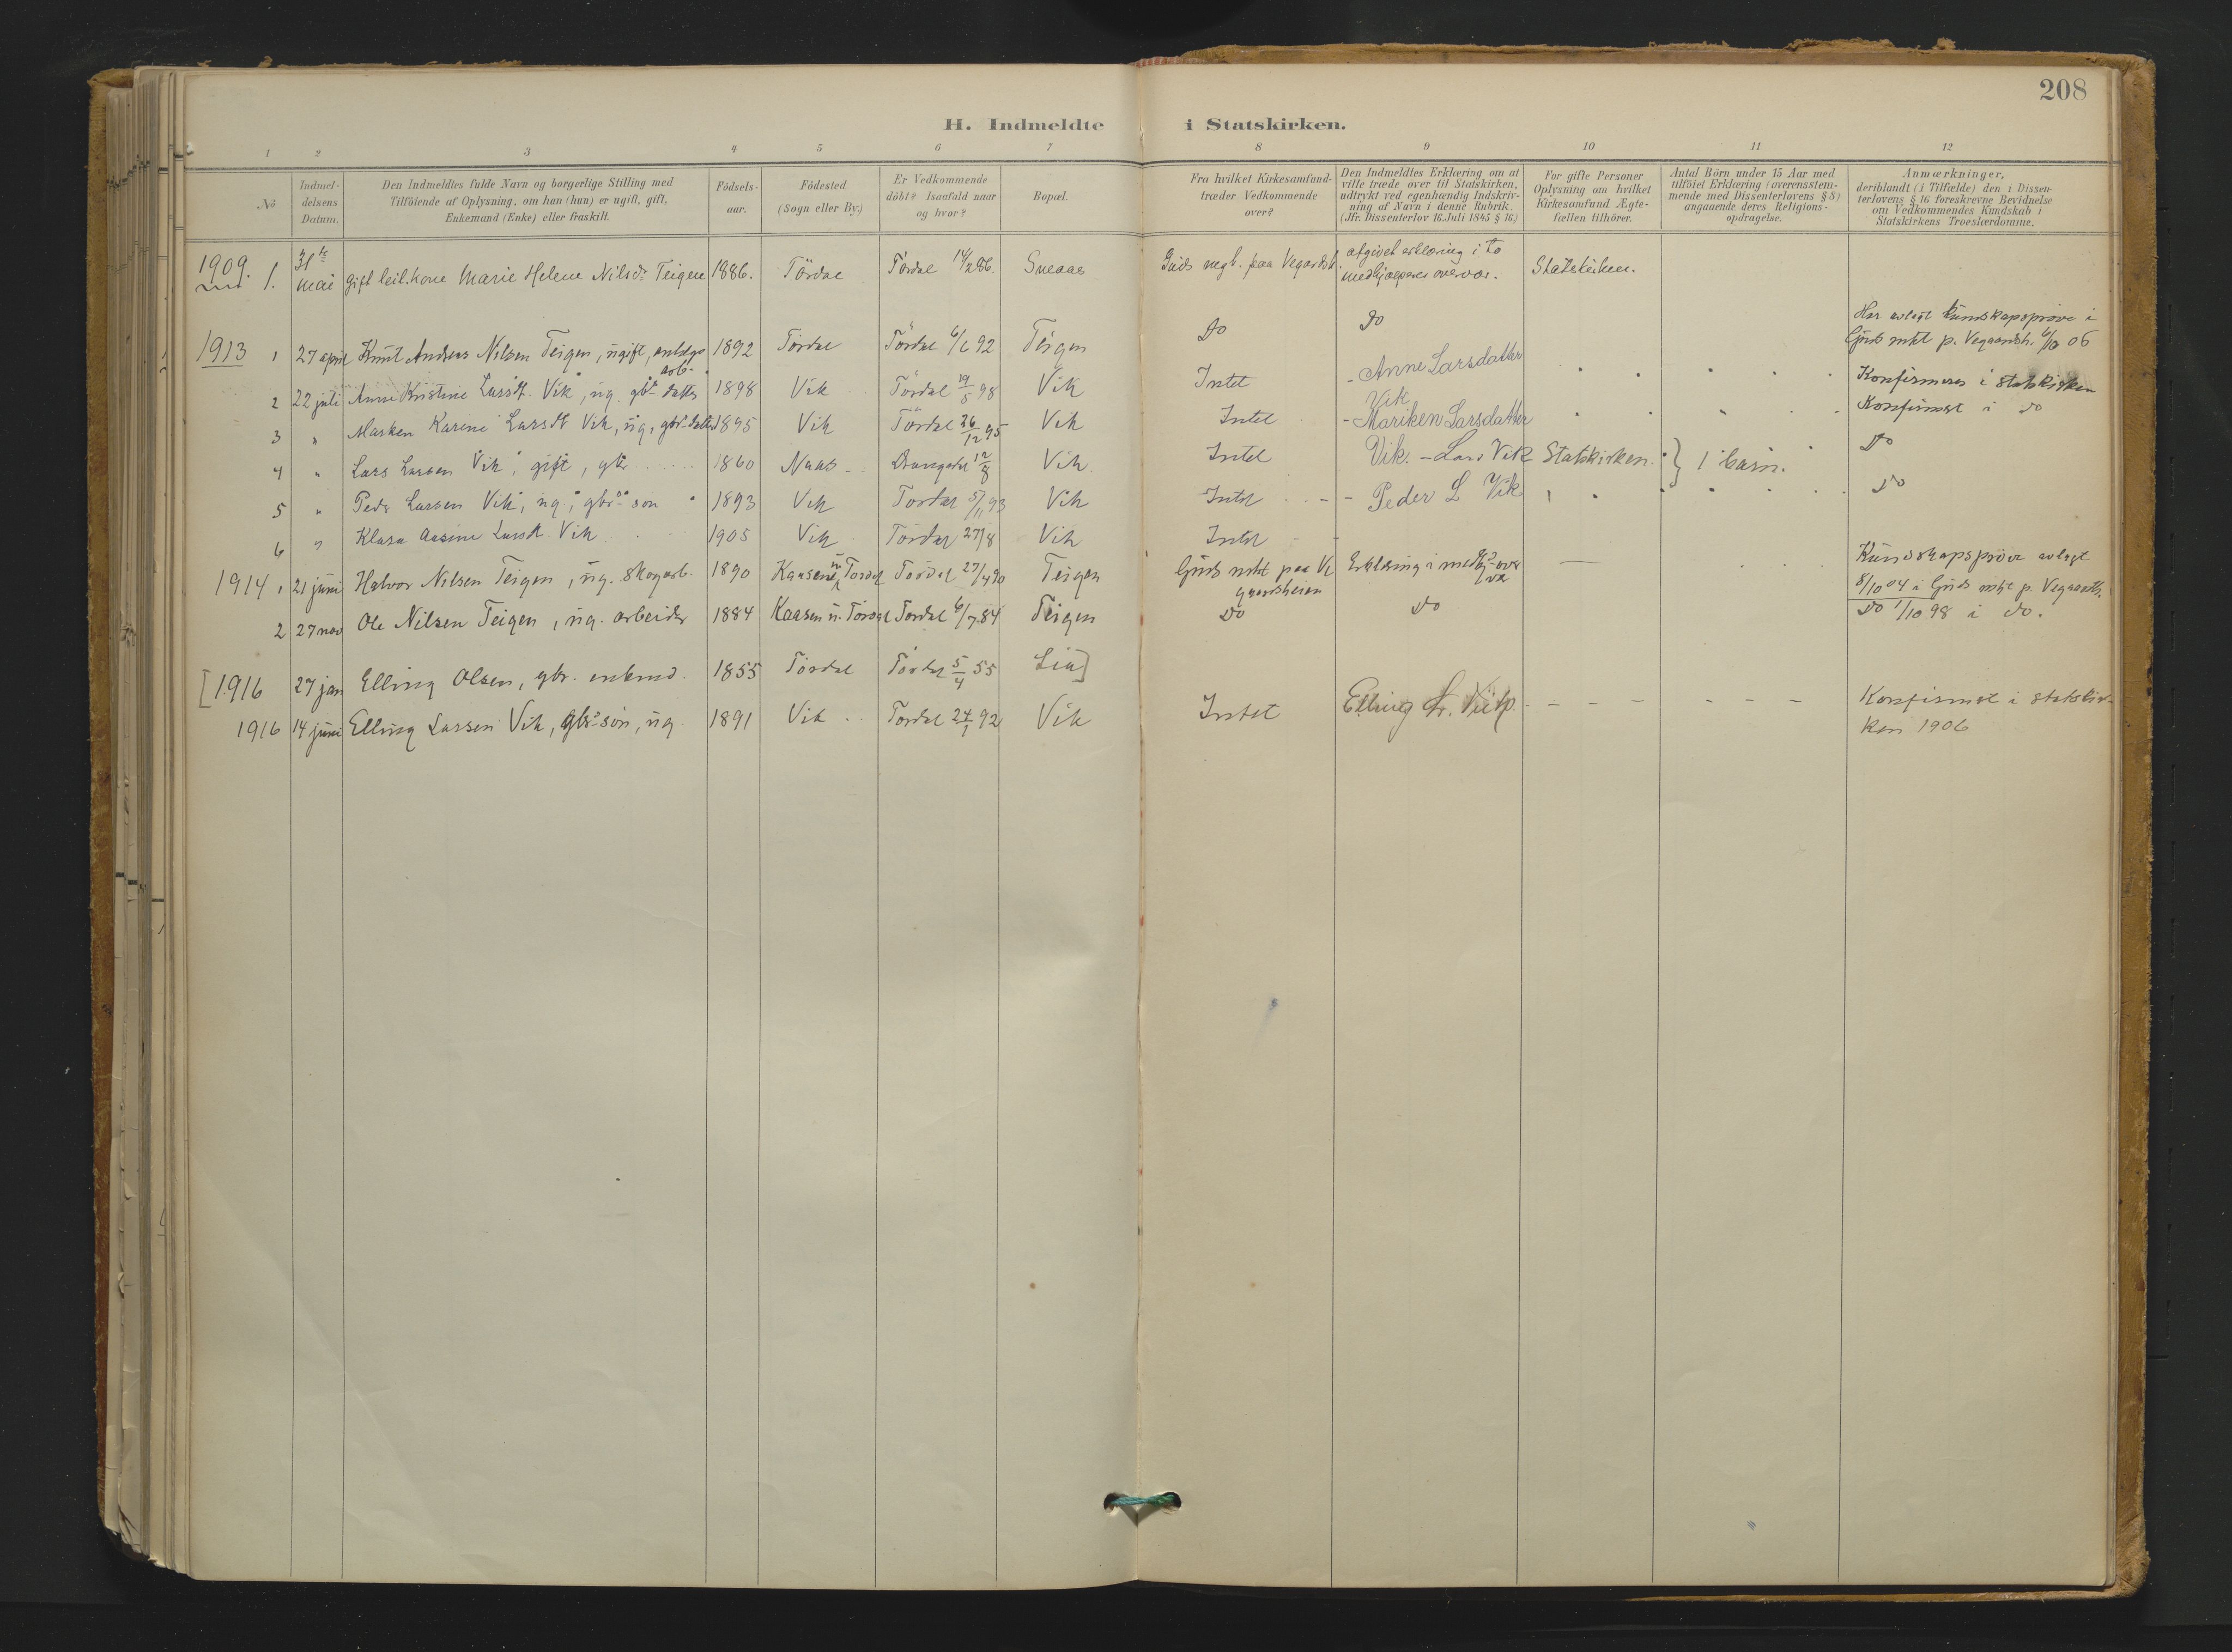 208
H. Indmeldte i Statskirken.
1 2 3 4 5 6 7 8 9 10 11 12
№
Indmel-
delsens
Datum.
Den Indmeldtes fulde Navn og borgerlige Stilling med
Tilföiende af Oplysning, om han (hun) er ugift, gift,
Enkemand (Enke) eller fraskilt.
Födsels-
aar.
Födested
(Sogn eller By.)
Er Vedkommende
döbt? Isaafald naar
og hvor?
Bopæl.
Fra hvilket Kirkesamfund
træder Vedkommende
over?
Den Indmeldtes Erklæring om at
ville træde over til Statskirken,
udtrykt ved egenhændig Indskriv-
ning af Navn i denne Rubrik.
(Jfr. Dissenterlov 16. Juli 1845 § 16.)
For gifte Personer
Oplysning om hvilket
Kirkesamfund Ægte-
fællen tilhörer.
Antal Börn under 15 Aar med
tilföiet Erklæring (overensstem-
mende med Dissenterlovens § 8)
angaaende deres Religions-
opdragelse.
Anmærkninger,
deriblandt (i Tilfælde) den i Dissen-
terlovens § 16 foreskrevne Bevidnelse
om Vedkommendes Kundskab i
Statskirkens Troeslærdomme.
1909. 1. 31te mai gift leil.kone Marie Helene Nilsdr Teigen 1886. Tördal Tördal 14/2 86. Sneaas Guds mgh. paa Vegardsh. afgivet erklæring i to
medhjælperes overvær. Statskirken.
1913 1 27 april Knut Andreas Nilsen Teigen, ugift, anlægs
arb. 1892 Tördal Tördal 6/6 92 Teigen Do Do Har avlagt kundskapspröve i
Guds mht p. Vegaardsh. 6/10 06
2 22 juli Anne Kristine Larsdt. Vik, ug. gbr datter 1898 Vik Tördal 19/5 98 Vik Intet - Anne Larsdatter
Vik Konfirmeres i statskirken
3 " Marken Karine Larsdt Vik, ug, gbr. datter 1895 Vik Tördal 26/12 95 Vik Intet - Mariken Larsdatter
Vik. Konfirmert i do
4 " Lars Larsen Vik, gift, gbr 1860 Drangedal 12/8 Vik. Intet - Lars Vik Statskirken. } 1 barn. Do
5 " Peder Larsen Vik, ug., gbr. sön 1893 Vik Tordal 5/11 93 Vik Intet - - Peder L Vik Do
6 " Klara Aasine Larsdt. Vik 1905 Vik Tördal 27/8 Vik Intet
1914 1 21 juni Halvor Nilsen Teigen, ug. skogarb. 1890 Kaasene Tördal 27/4 90 Teigen Guds mht paa Ve
gaardsheien Erklæring i — Kundskapspröve avlagt
8/10 04 i Guds mht p. Vegaardsh.
2 27 nov Ole Nilsen Teigen, ug. arbeider 1884 Kaasen u. Tördal Tördal 6/7 84 Teigen Do Do Do 1/10 98 i do.
[1916 27 jan Elling Olsen, gbr. enkmd. 1855 Tördal Tördal 5/4 55 Lia]
1916 14 juni Elling Larsen Vik, gbr. sön, ug. 1891 Vik Tordal 24/1 92 Vik Intet Elling L. Vik - - - - - - - Konfirmert i statskir-
ken 1906